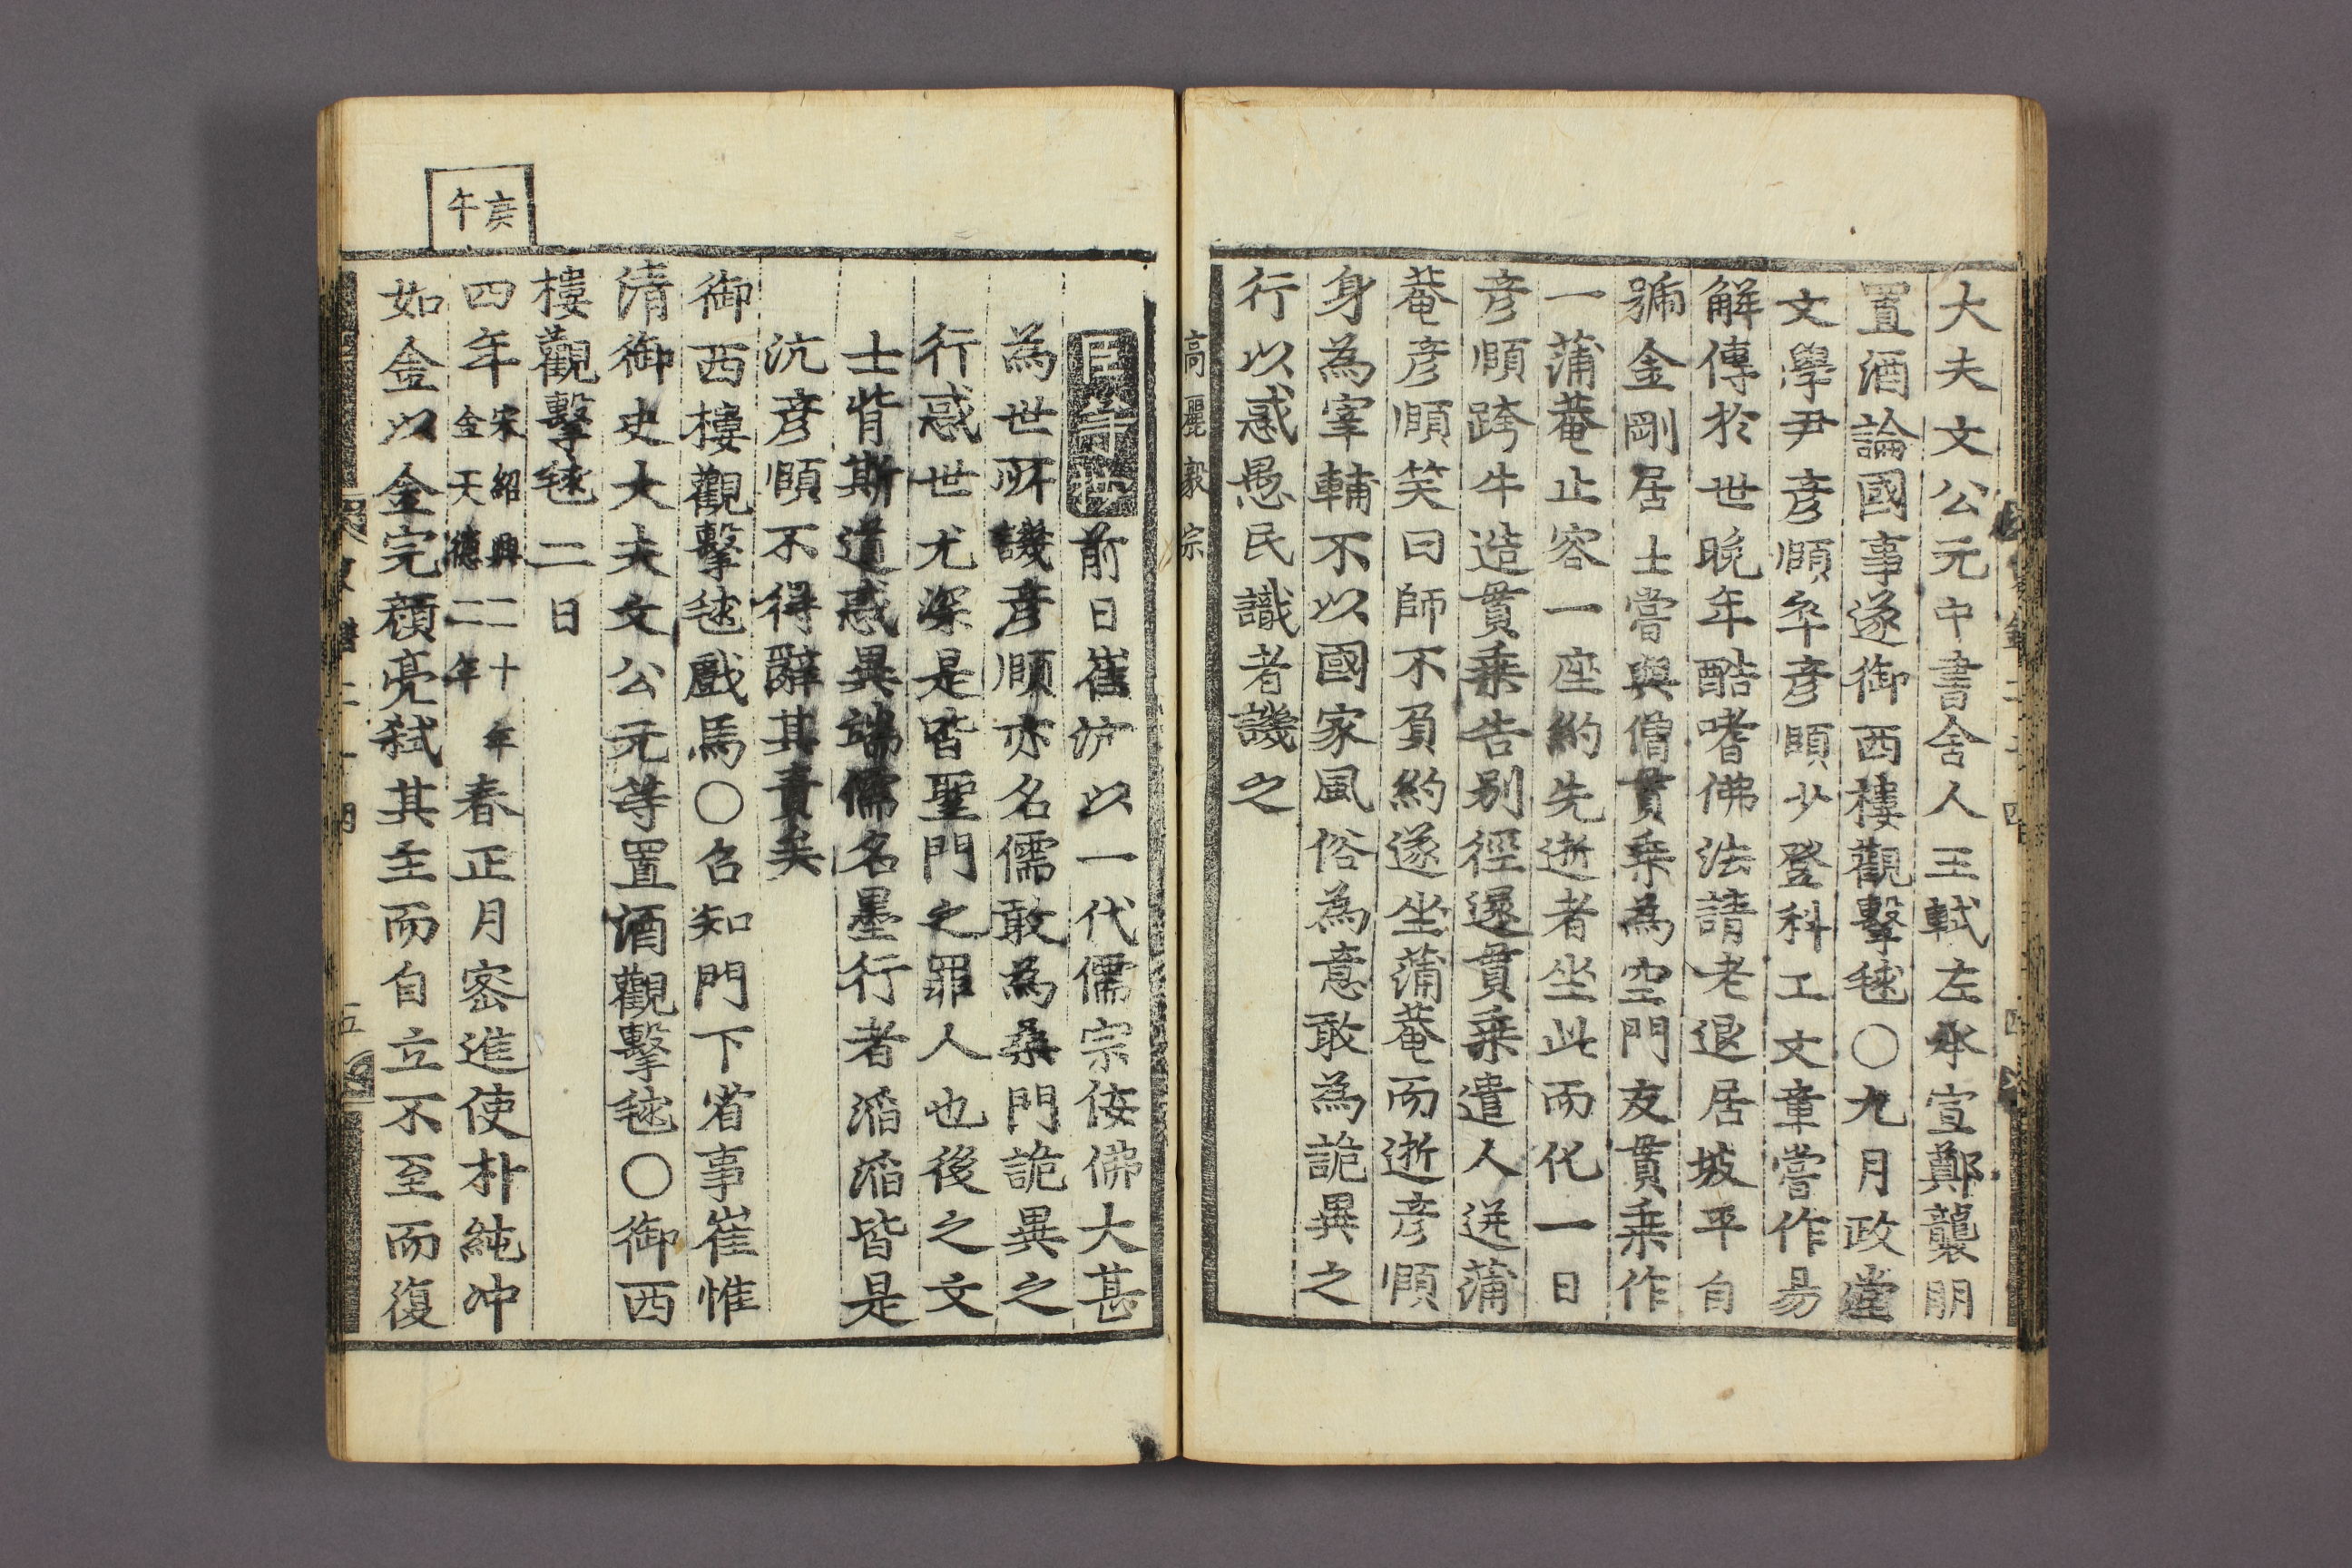 大夫文公元中書舍人王軾左承宣鄭襲明
置酒論國事遂御西樓觀擊毬○九月政堂
文學尹彦頤卒彦頤少登科工文章嘗作易
解傳於世晩年酷嗜佛法請老退居坡平自
號金剛居士嘗與僧貫乗為空門友貫乗作
一蒲菴止容一座約先逝者坐此而化一日
彦頤跨牛造貫乗告别徑還貫乗遣人送蒲
菴彦頤笑曰師不負約遂坐蒲菴而逝彦頤
身為宰輔不以國家風俗為意敢為詭異之
行以惑愚民識者譏之
高麗毅宗
前日崔沆以一代儒宗侫佛大甚
為世所譏彦頤亦名儒敢為桑門詭異之
行惑世尤深是皆聖門之罪人也後之文
士背斯道惑異端儒名墨行者滔滔皆是
沆彦頤不得辭其責矣
御西樓觀擊毬戲馬○召知門下省事崔惟
清御史大夫文公元等置酒觀擊毬○御西
樓觀擊毬二日
庚午
四年宋紹興二十年金天德二年春正月密進使朴純冲
如金以金完顔亮弑其主而自立不至而復